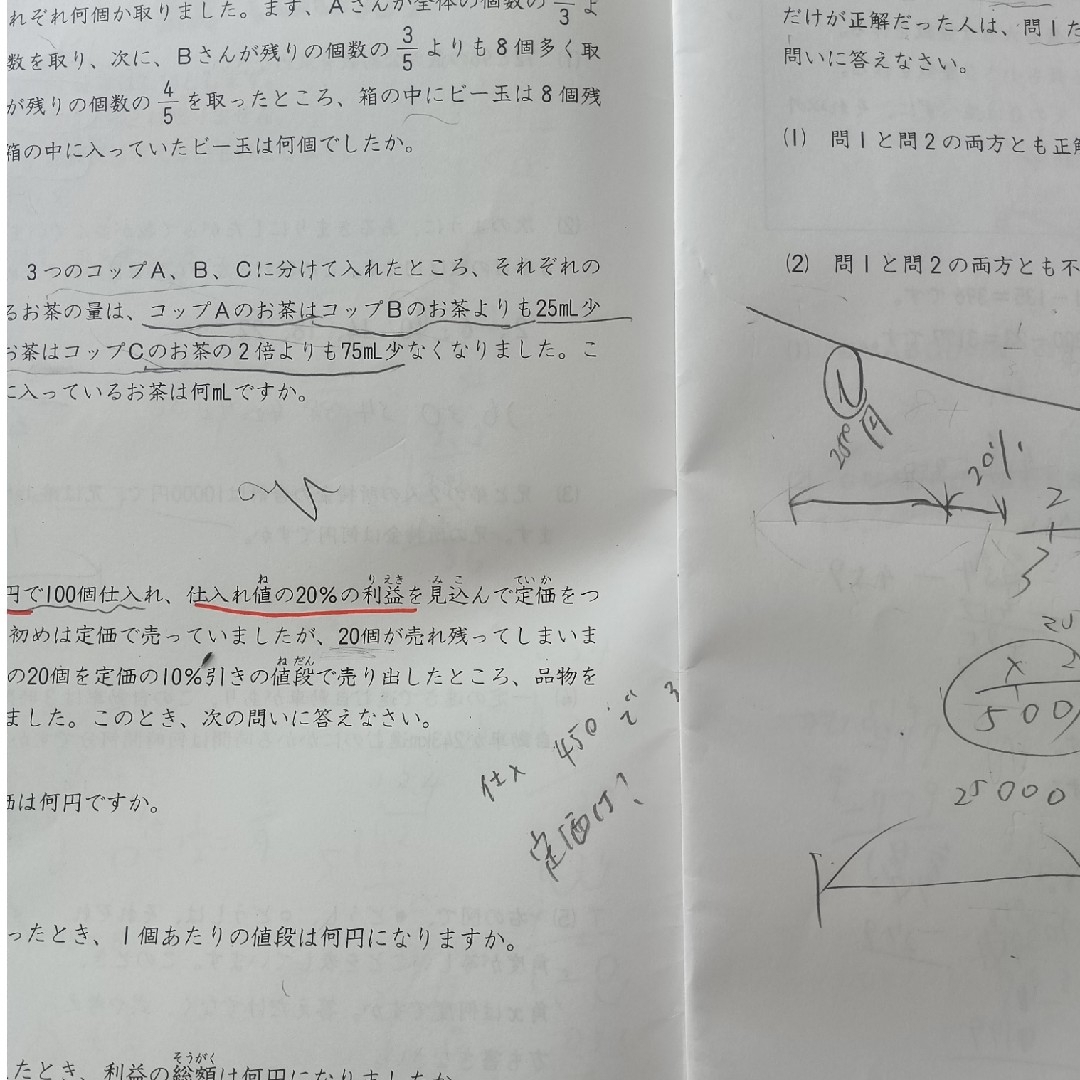 れぞれ何個か取りました。まず、Aさんが全体の個数の 3 よ
数を取り、次に、Bさんが残りの個数の 3/5 よりも8個多く取
が残りの個数の 4/5 を取ったところ、箱の中にビー玉は8個残
箱の中に入っていたビー玉は何個でしたか。
3つのコップA、B、Cに分けて入れたところ、それぞれの
るお茶の量は、コップAのお茶はコップBのお茶よりも25mL少
お茶はコップCのお茶の2倍よりも75mL少なくなりました。こ
に入っているお茶は何mLですか。
円で100個仕入れ、仕入れ値の20%の利益を見込んで定価をつ
初めは定価で売っていましたが、20個が売れ残ってしまいま
の20個を定価の10%引きの値段で売り出したところ、品物を
ました。このとき、次の問いに答えなさい。
は何円ですか。
仕入 450
定価は?
ったとき、1個あたりの値段は何円になりますか。
たとき、利益の総額は何円になりましたか
だけが正解だった人は、問1た
問いに答えなさい。
(1) 問1と問2の両方とも正解
(2) 問1と問2の両方とも不
1
2500円
20%
2
3
500
25000